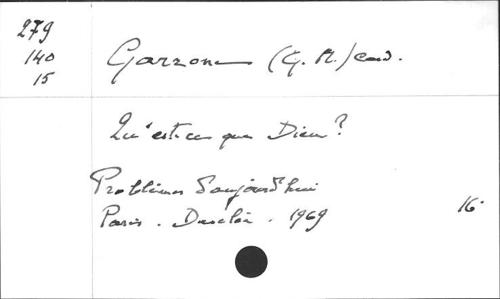 279
140
15
Garzone (G. M.) card.
Qu'est-ce que Dieu?
Problèmes d'aujourd'hui
Paris. Desclée. 1969
16°